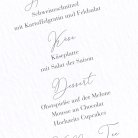 Schweineschnitzel
mit Kartoffelgratin und Feldsalat
Käse
Käseplatte
mit Salat der Saison
Dessert
Obstspieße auf der Melone
Mousse au Chocolat
Hochzeits Cupcakes